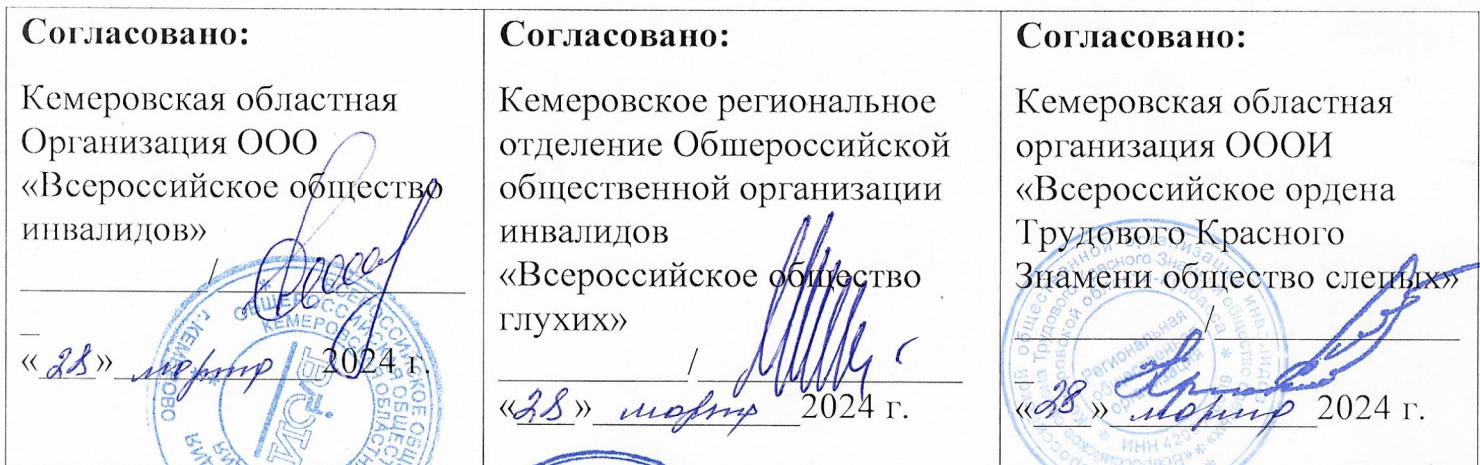 Согласовано:
Кемеровская областная
Организация ООО
«Всероссийское общество
инвалидов»
/
«28» марта 2024 г.
Согласовано:
Кемеровское региональное
отделение Обшероссийской
общественной организации
инвалидов
«Всероссийское общество
глухих»
/
«28» марта 2024 г.
Согласовано:
Кемеровская областная
организация ОООИ
«Всероссийское ордена
Трудового Красного
Знамени общество слепых»
/
«28» марта 2024 г.
г. КЕМЕРОВО
Региональная
общественная
организация